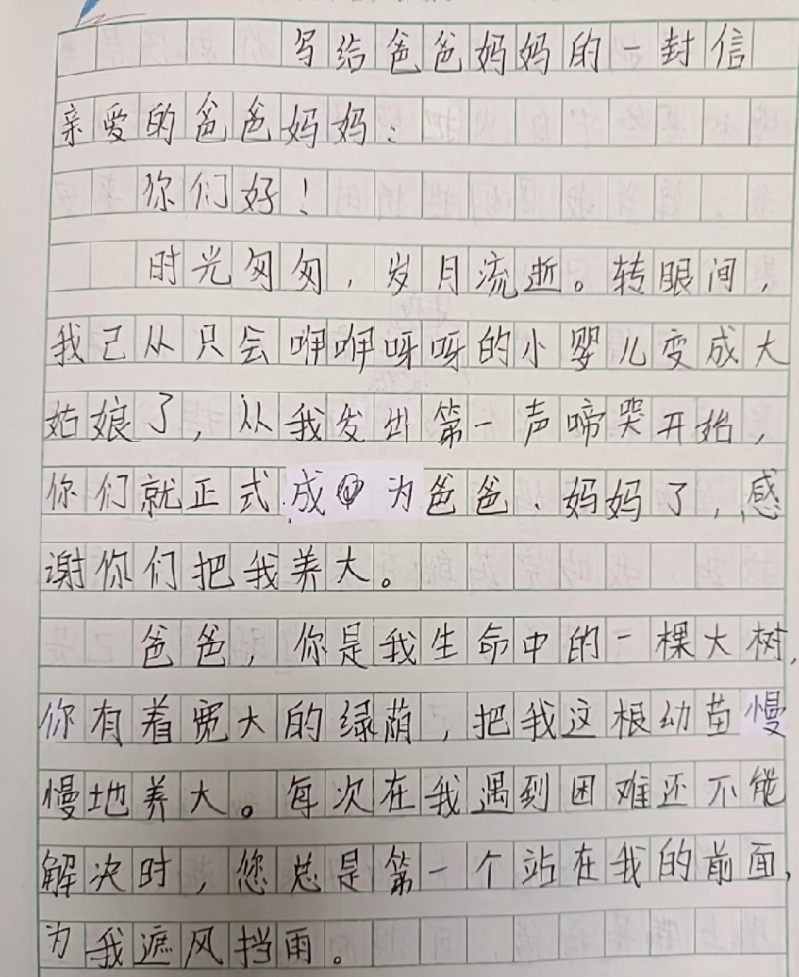 写给爸爸妈妈的一封信
亲爱的爸爸妈妈：
你们好！
时光匆匆，岁月流逝。转眼间，
我已从只会咿咿呀呀的小婴儿变成大
姑娘了，从我发出第一声啼哭开始，
你们就正式成为爸爸、妈妈了，感
谢你们把我养大。
爸爸，你是我生命中的一棵大树，
你有着宽大的绿荫，把我这根幼苗慢
慢地养大。每次在我遇到困难还不能
解决时，您总是第一个站在我的前面，
为我遮风挡雨。